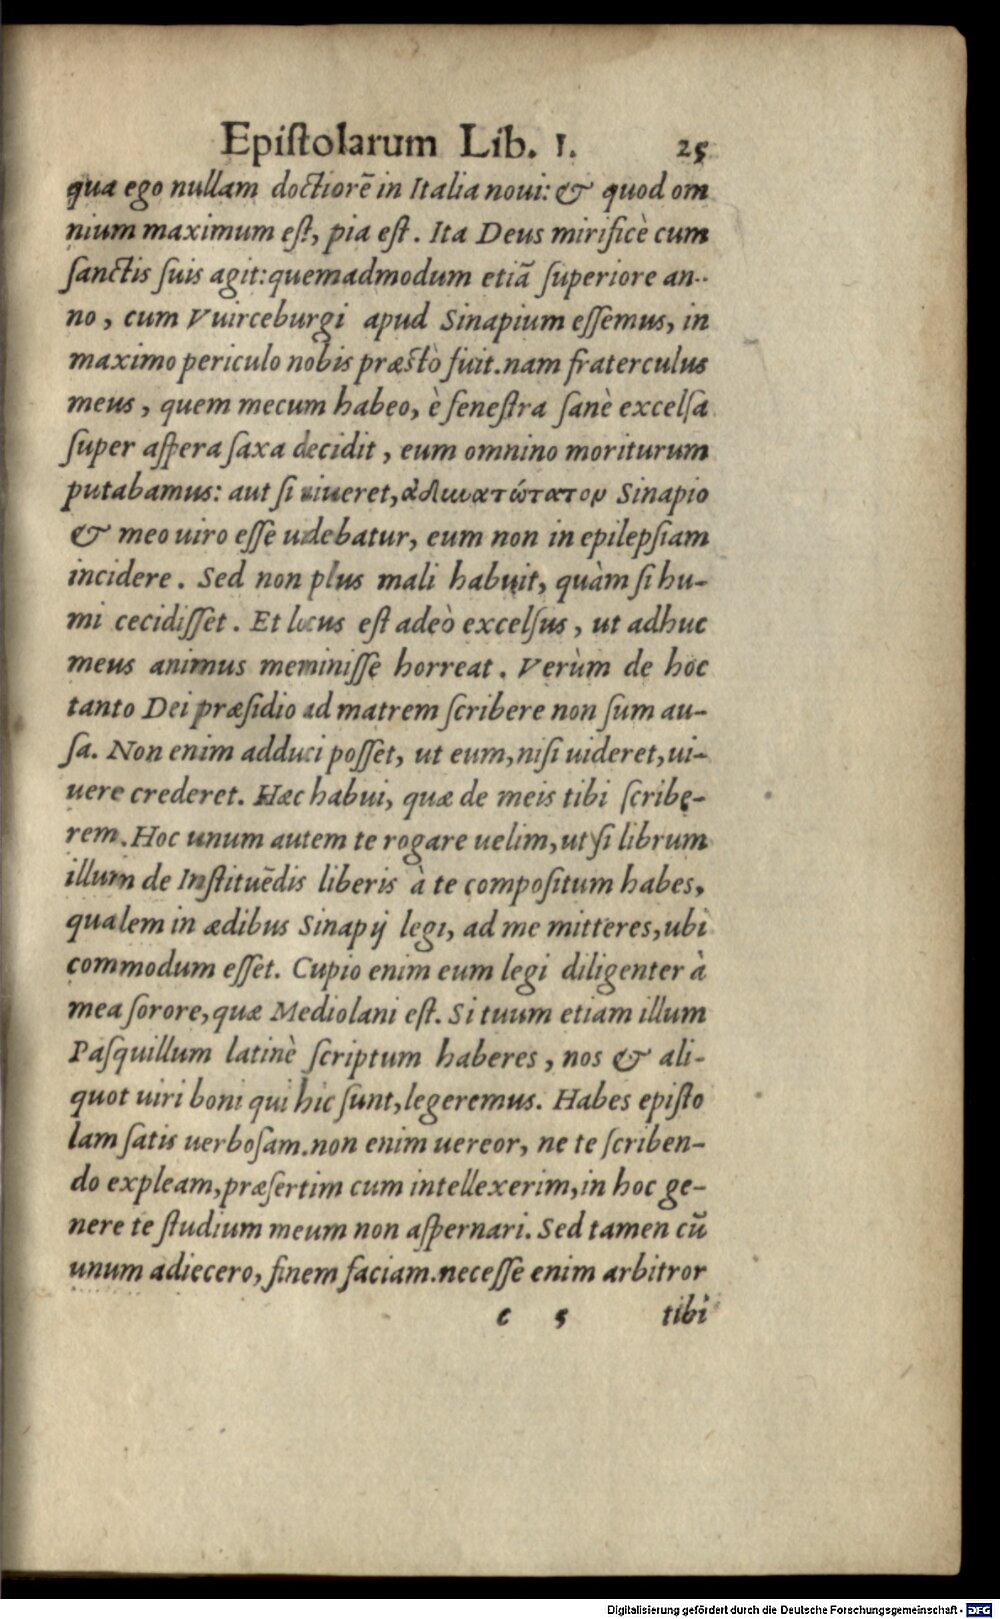 Epiſtolarum Lib. I. 25
qua ego nullam doctiorē in Italia noui: & quod om
nium maximum eſt, pia eſt. Ita Deus mirificè cum
ſanctis ſuis agit: quemadmodum etiã ſuperiore an-
no, cum Vuirceburgi apud Sinapium eſſemus, in
maximo periculo nobis præstò fuit. nam fraterculus
meus, quem mecum habeo, è feneſtra ſanè excelſa
ſuper aſpera ſaxa decidit, eum omnino moriturum
putabamus: aut ſi uiueret, ἀδυνατώτατον Sinapio
& meo uiro eſſe uidebatur, eum non in epilepſiam
incidere. Sed non plus mali habuit, quàm ſi hu-
mi cecidiſſet. Et locus eſt adeò excelſus, ut adhuc
meus animus meminiſſe horreat. Verùm de hoc
tanto Dei præſidio ad matrem ſcribere non ſum au-
ſa. Non enim adduci poſſet, ut eum, niſi uideret, ui-
uere crederet. Hæc habui, quæ de meis tibi ſcribe-
rem. Hoc unum autem te rogare uelim, ut ſi librum
illum de Inſtituēdis liberis à te compoſitum habes,
qualem in ædibus Sinapij legi, ad me mitteres, ubi
commodum eſſet. Cupio enim eum legi diligenter à
mea ſorore, quæ Mediolani eſt. Si tuum etiam illum
Paſquillum latinè ſcriptum haberes, nos & ali-
quot uiri boni qui hic ſunt, legeremus. Habes epiſto
lam ſatis uerboſam. non enim uereor, ne te ſcriben-
do expleam, præſertim cum intellexerim, in hoc ge-
nere te ſtudium meum non aſpernari. Sed tamen cũ
unum adiecero, finem faciam. neceſſe enim arbitror
c 5 tibi
Digitalisierung gefördert durch die Deutsche Forschungsgemeinschaft - DFG